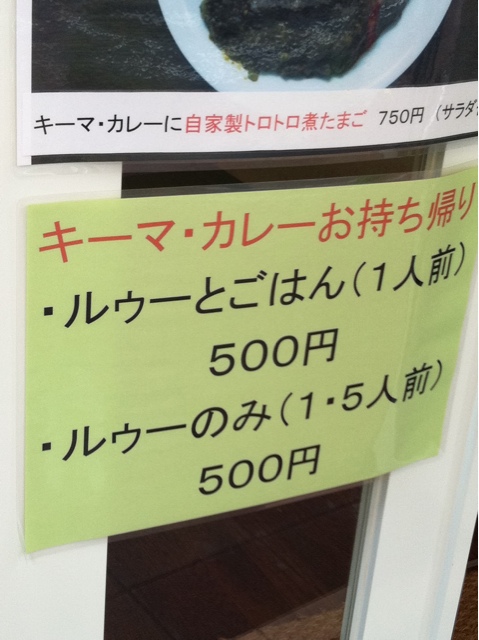 キーマ・カレーに自家製トロトロ煮たまご 750円 (サラダ
キーマ・カレーお持ち帰り
・ルゥーとごはん(1人前)
500円
・ルゥーのみ(1・5人前)
500円